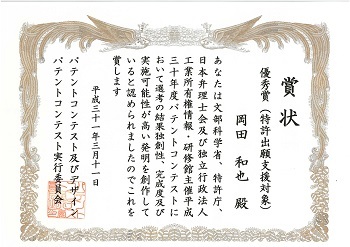 賞状
優秀賞(特許出願支援対象)
岡田 和也 殿
あなたは文部科学省、特許庁、
日本弁理士会及び独立行政法人
工業所有権情報・研修館主催平成
三十年度パテントコンテストに
おいて選考の結果独創性、完成度及び
実施可能性が高い発明を創作して
いると認められましたのでこれを
賞します
平成三十一年三月十一日
パテントコンテスト及びデザイン
パテントコンテスト実行委員会